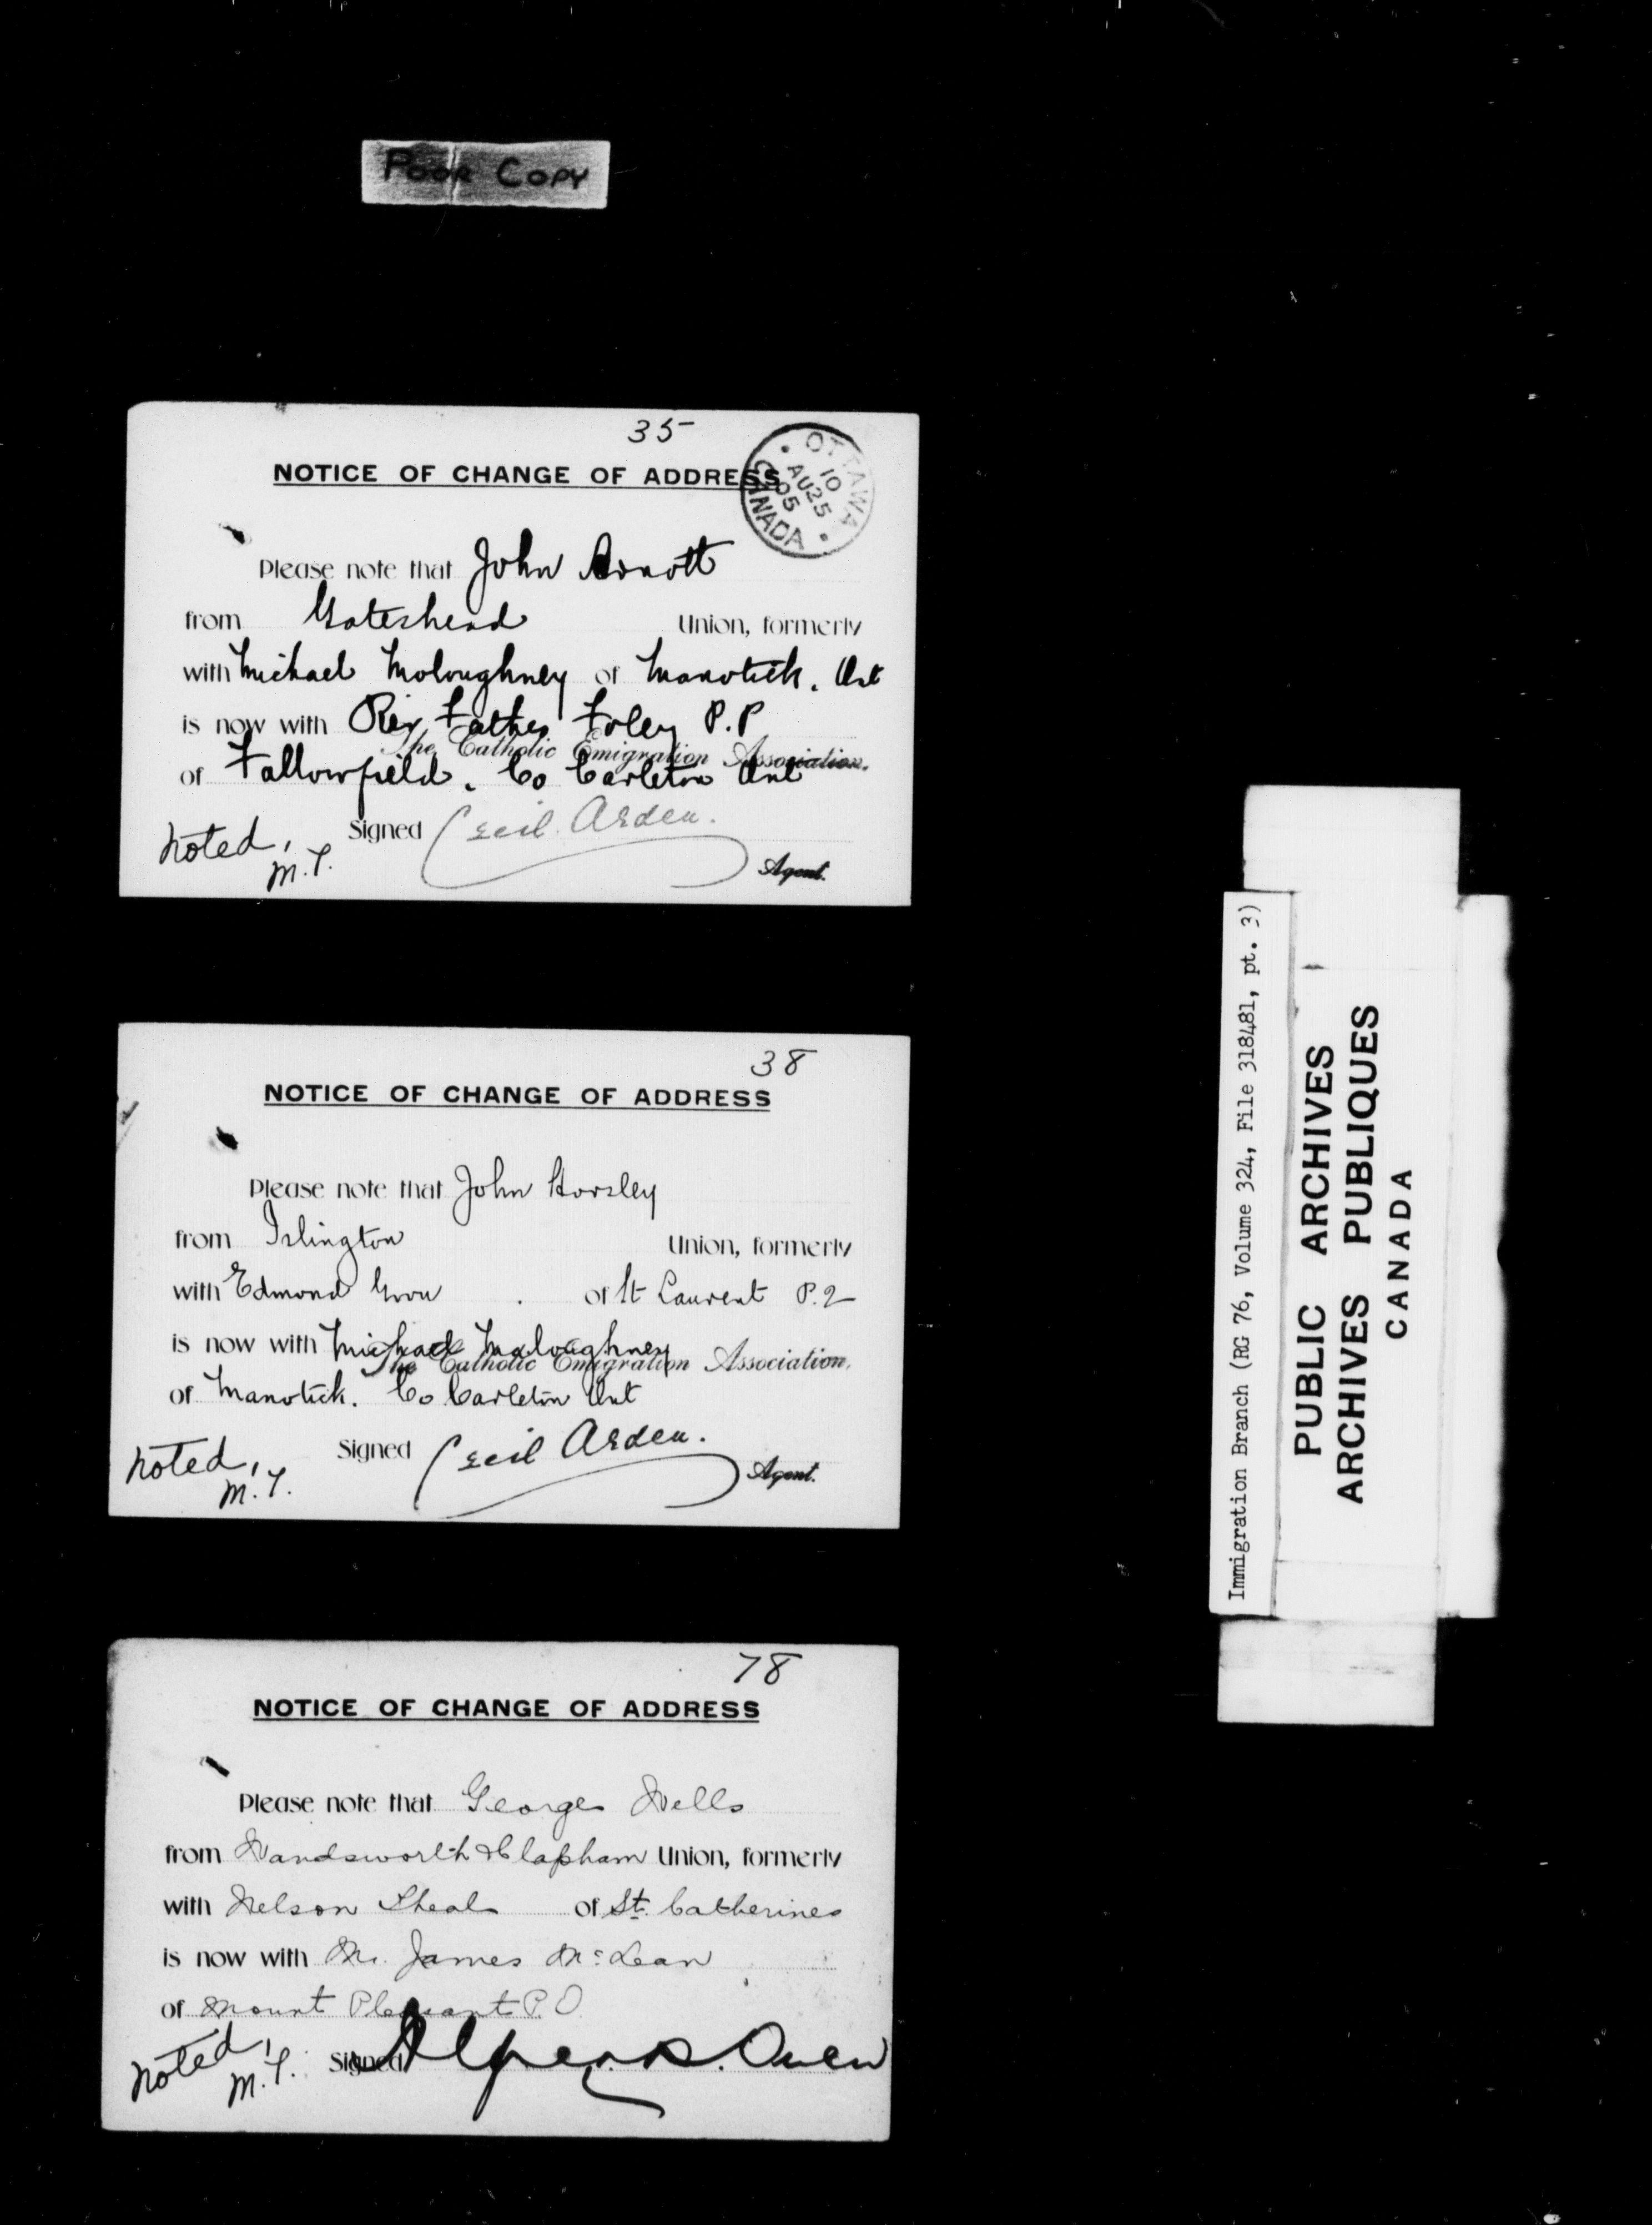 POOR COPY
35
NOTICE OF CHANGE OF ADDRESS
OTTAWA
10
AU 25
05
CANADA
Please note that John Arnott
from Gateshead Union, formerly
with Michael Moloughney of Manotick. Ont
is now with Rev Father Foley P.P
The Catholic Emigration Association.
of Fallowfield. Co Carleton Ont
Signed Cecil Arden.
Noted, M.T.
Agent.
38
NOTICE OF CHANGE OF ADDRESS
Please note that John Horsley
from Islington Union, formerly
with Edmond of St Laurent P.Q
is now with Michael Moloughney
The Catholic Emigration Association.
of Manotick. Co Carleton Ont
Signed Cecil Arden.
Noted, M.T.
Agent.
78
NOTICE OF CHANGE OF ADDRESS
Please note that George Wells
from Wandsworth & Clapham Union, formerly
with Nelson Sheal of St. Catherines
is now with Mr. James McLean
of Mount Pleasant P.O.
Noted, M.T.
Signed Owen
Immigration Branch (RG 76, Volume 324, File 318481, pt. 3)
PUBLIC ARCHIVES
ARCHIVES PUBLIQUES
CANADA